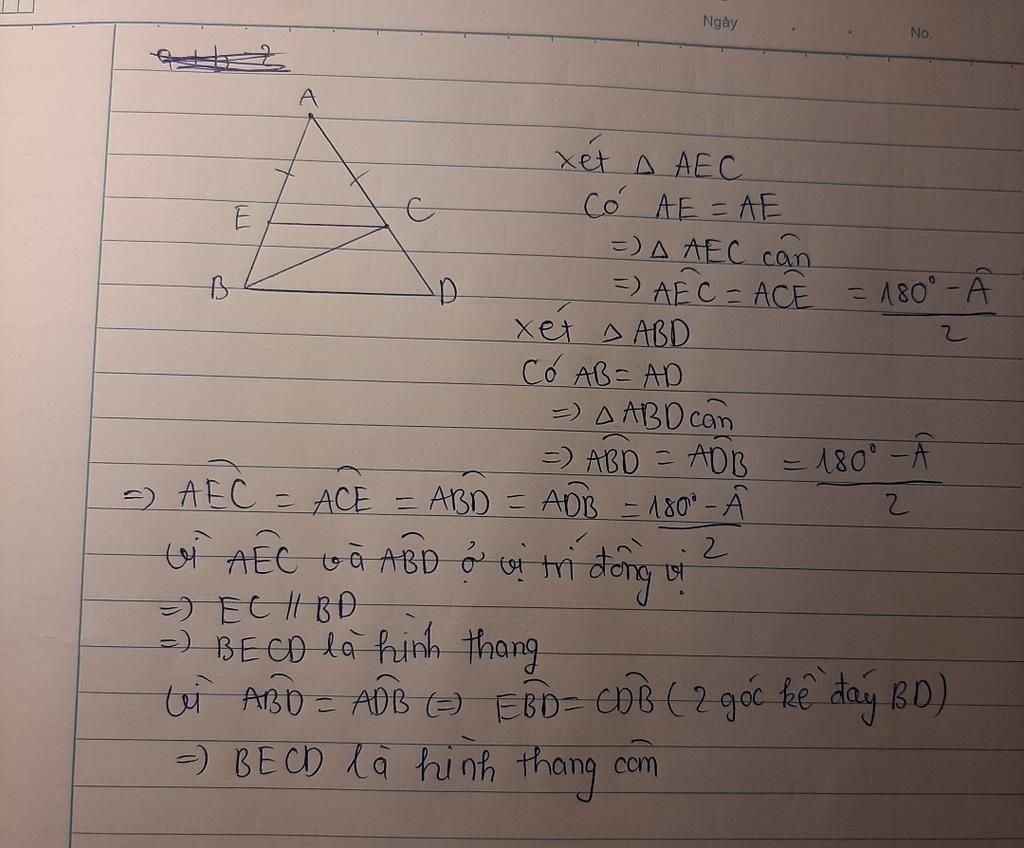 Ngày
No.
A
E
C
B
D
xét △ AEC
Có AE = AE
=) △ AEC cân
=) AÊC = AĈE = 180° - Â / 2
xét △ ABD
Có AB = AD
=) △ ABD cân
=) AB̂D = AD̂B = 180° - Â / 2
=) AÊC = AĈE = AB̂D = AD̂B = 180° - Â / 2
Vì AÊC và AB̂D ở vị trí đồng vị
=) EC // BD
=) BECD là hình thang
Vì AB̂D = AD̂B (=) EB̂D = CD̂B ( 2 góc kề đáy BD)
=) BECD là hình thang cân